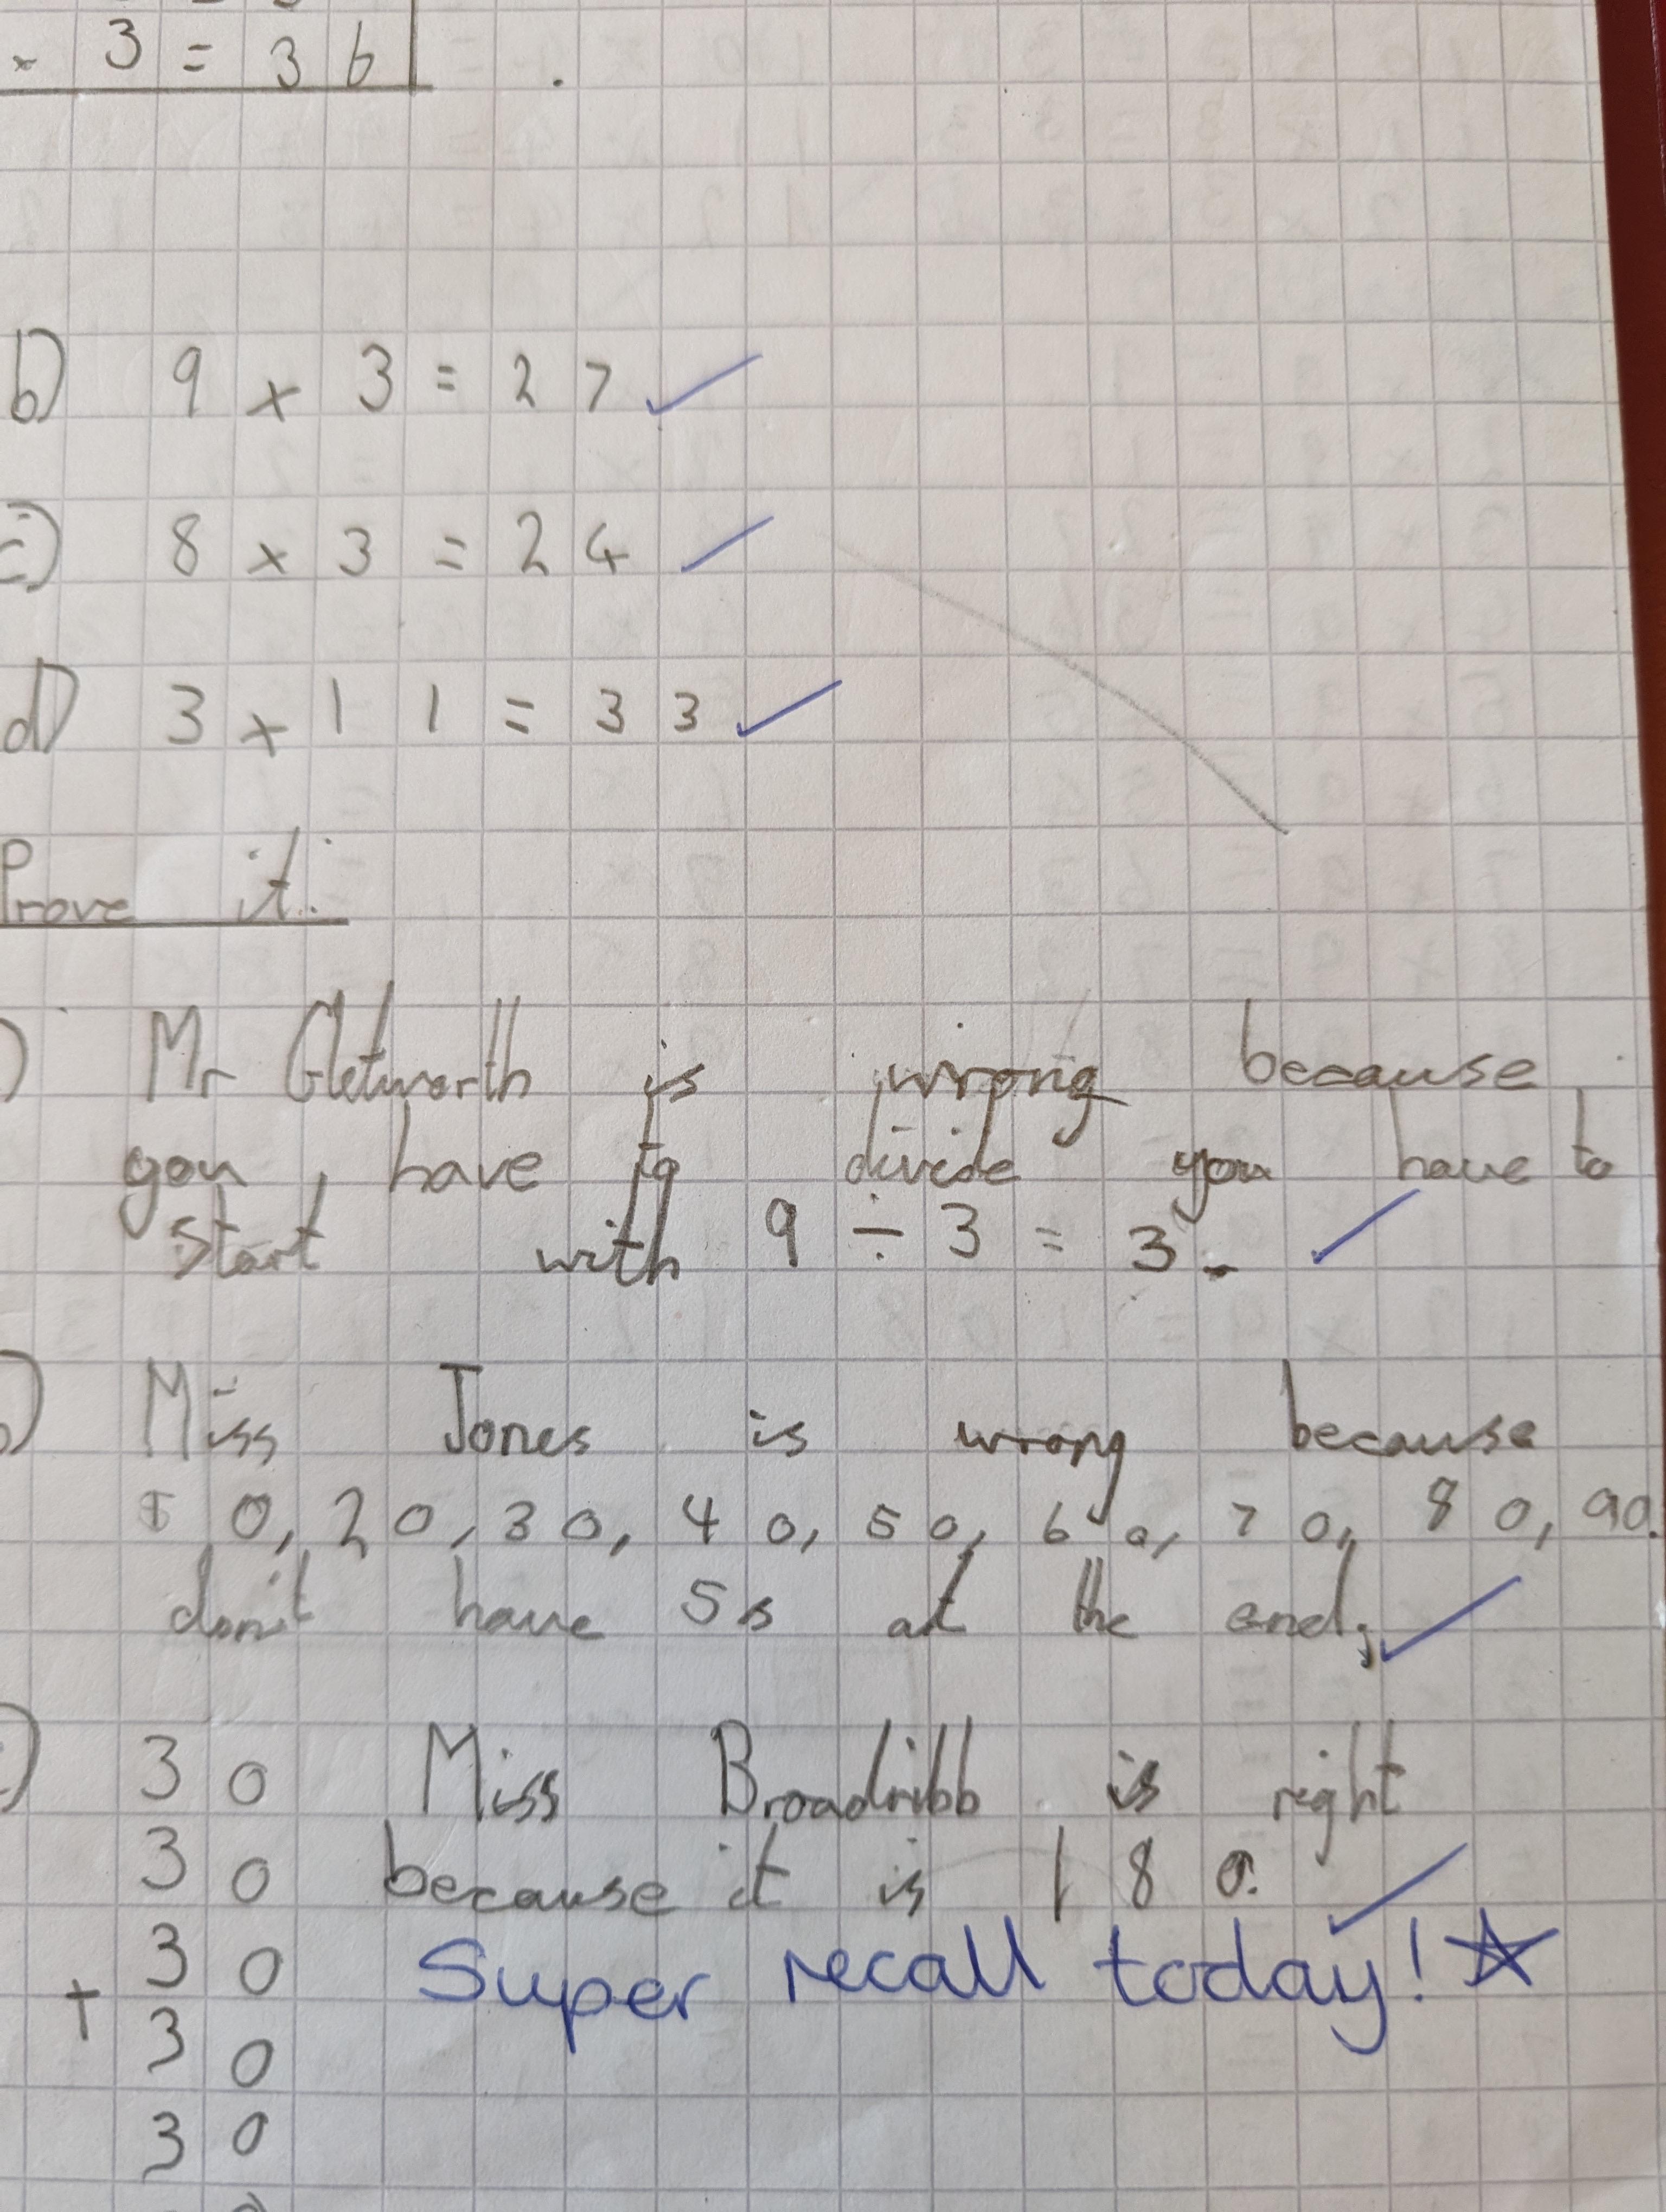 × 3 = 36
b) 9 × 3 = 27
c) 8 × 3 = 24
d) 3 × 11 = 33
Prove it.
) Mr Gletworth is wrong because
you, have to divide you have to
start with 9 ÷ 3 = 3.
) Miss Jones is wrong because
0, 20, 30, 40, 50, 60, 70, 80, 90.
don't have 5s at the end;
) 30 Miss Broadribb is right
30 because it is 180.
+ 30 Super recall today!
30
30